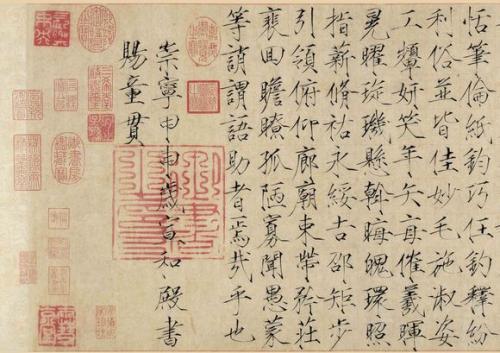 恬筆倫紙鈞巧任釣釋紛
利俗並皆佳妙毛施淑姿
工顰妍笑年矢每催羲暉
晃曜琁璣懸斡晦魄環照
指薪脩祜永綏吉邵矩步
引領俯仰廊廟束帶矜莊
裵回瞻瞭孤陋寡聞愚蒙
等誚謂語助者焉哉乎也
崇寧甲申歲宣和殿書
賜童貫